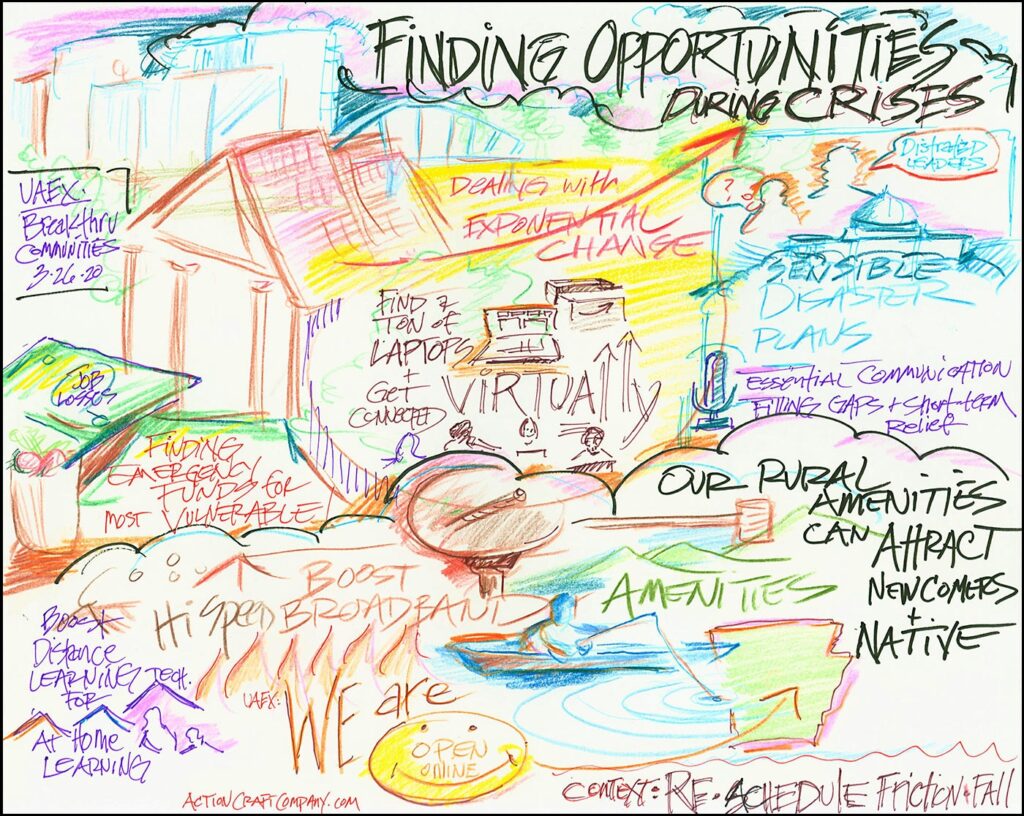 FINDING OPPORTUNITIES
DURING CRISES
UAEX:
BREAKTHRU
COMMUNITIES
3·26·20
DEALING WITH
EXPONENTIAL
CHANGE
?
DISTRATED
LEADERS
SENSIBLE
DISASTER
PLANS
FIND a
TON OF
LAPTOPS
+
GET
CONNECTED
VIRTUALLY
ESSENTIAL COMMUNICATION
FILLING GAPS + SHORT-TERM
RELIEF
JOB
LOSSES
FINDING
EMERGENCY
FUNDS FOR
MOST VULNERABLE
OUR RURAL
AMENITIES
CAN ATTRACT
NEWCOMERS
+
NATIVE
BOOST
HI SPEED BROADBAND
AMENITIES
BOOST
DISTANCE
LEARNING TECH.
FOR
AT HOME
LEARNING
UAEX:
WE are
OPEN
ONLINE
ACTIONCRAFTCOMPANY.COM
CONTEXT: RE-SCHEDULE FRICTION + FALL